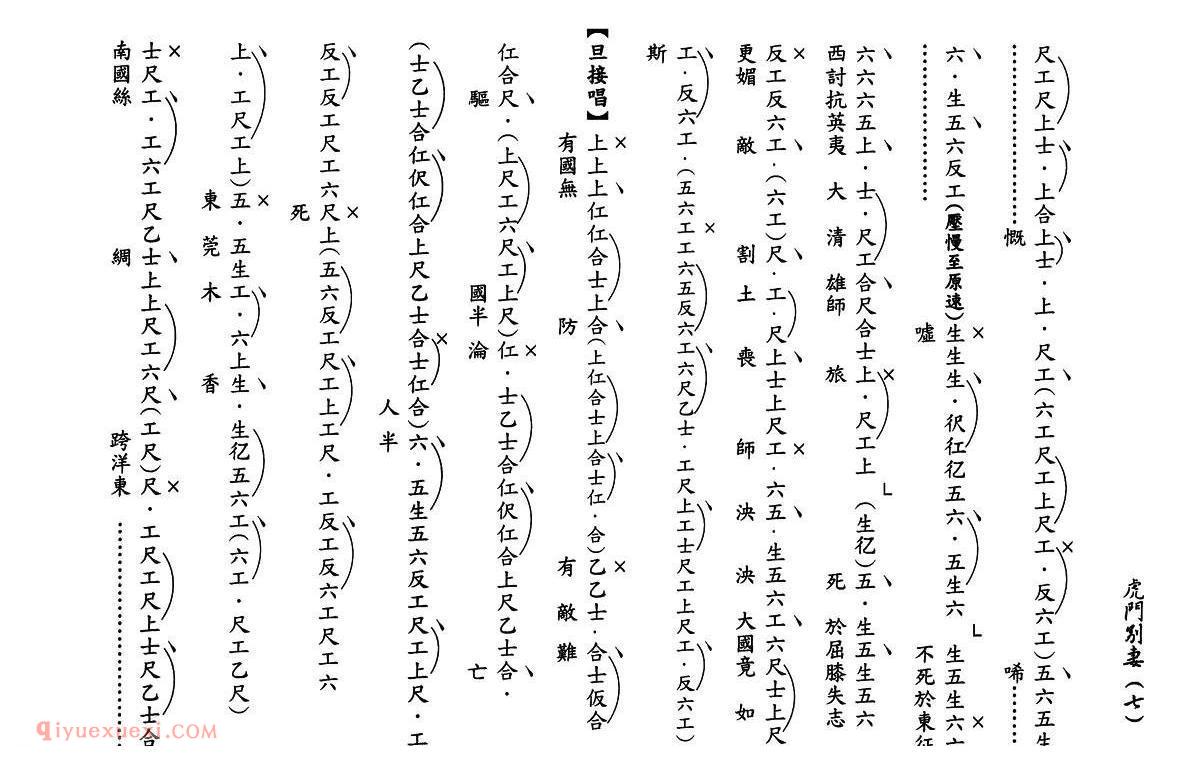 虎門別妻（七）
尺工尺上士．上合上士．上．尺工（六工尺工上尺工．反六工）五六五生
慨 唏
六．生五六反工（壓慢至原速）生生生．伬仜亿五六．五生六 生五生六六
噓 不死於東征
六六六五上．士．尺工合尺合士上．尺工上（生亿）五．生五生五六
西討抗英夷 大清雄師旅 死於屈膝失志
反工反六工．（六工）尺．工．尺上士上尺工．六五．生五六工六尺士上尺
更媚敵 割土喪師 泱泱大國竟如
工．反六工．（五六工工六五反六工六尺乙士．工尺上工士尺工上尺工．反六工）
斯
【旦接唱】上上上仜仜合士上合（上仜合士上合士仜．合）乙乙士．合士仮合
有國無防 有敵難
仜合尺．（上尺工六尺工上尺）仜．士乙士合仜伬仜合上尺乙士合．
驅 國半淪亡
（士乙士合仜伬仜合上尺乙士合士仜合）六．五生五六反工尺工上尺．工
人半
反工反工尺工六尺上（五六反工尺工上工尺．工反工反六工尺工六
死
上．工尺工上）五．五生工．六上生．生亿五六工（六工．尺工乙尺）
東莞木香
士尺工．工六工尺乙士上上尺工六尺（工尺）尺．工尺工尺上士尺乙士合
南國絲綢 跨洋東
qiyuexuexi.com